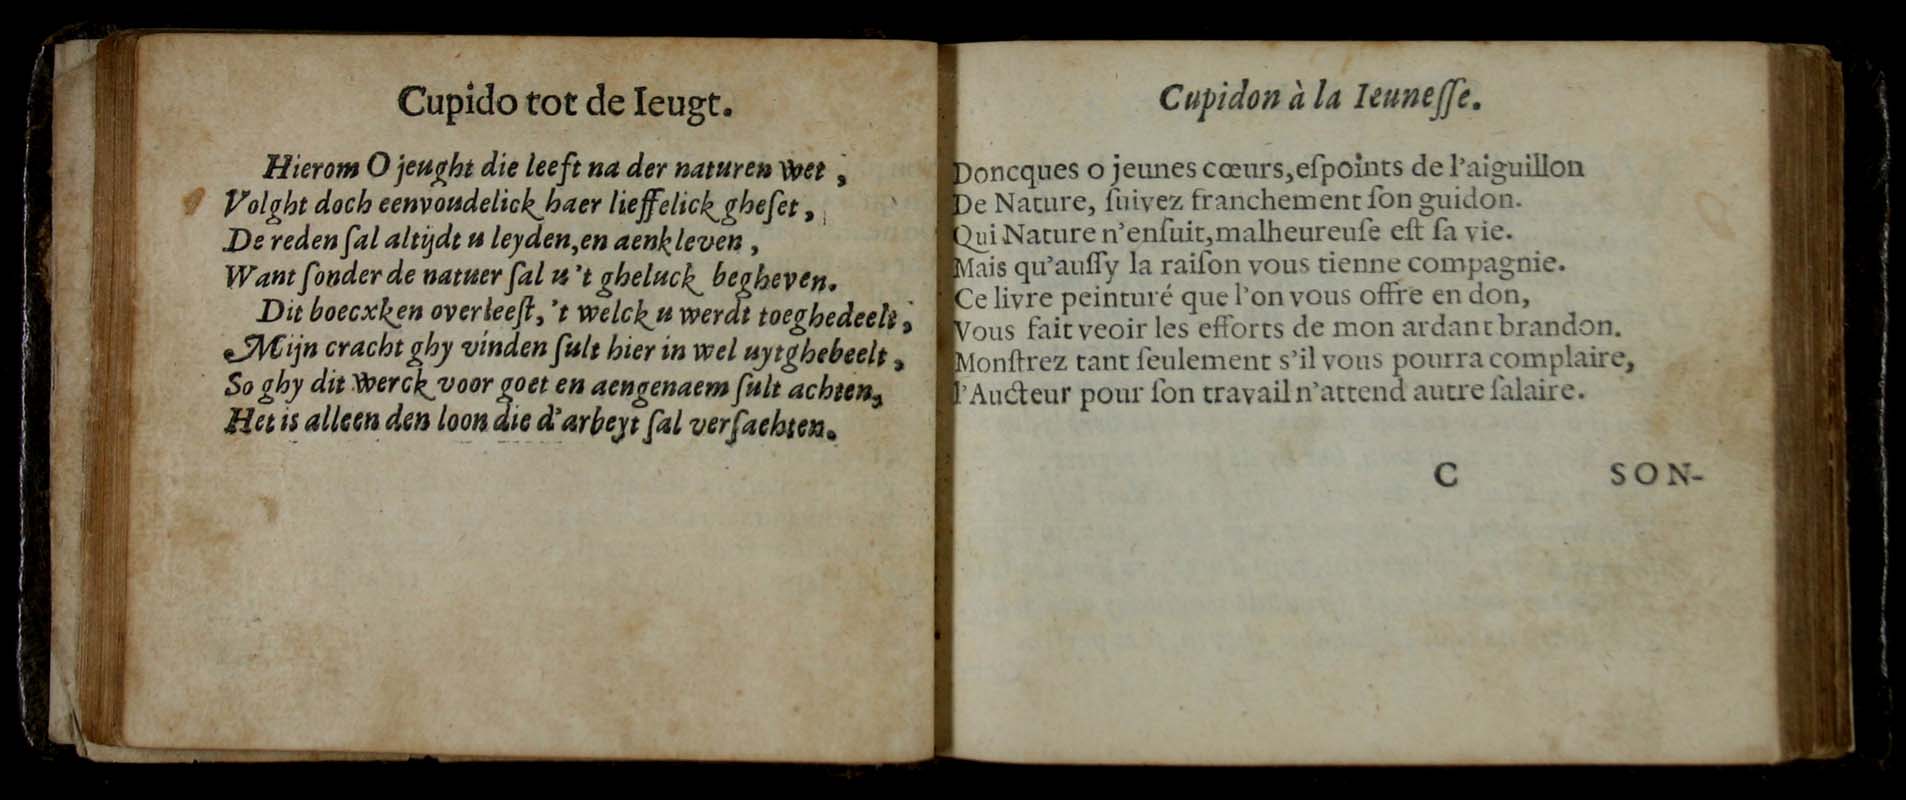 Cupido tot de Ieugt.
Hierom O jeught die leeft na der naturen wet,
Volght doch eenvoudelick haer lieffelick gheſet,
De reden ſal altijdt u leyden, en aenkleven,
Want ſonder de natuer ſal u 't gheluck begheven.
Dit boecxken overleeſt, 't welck u werdt toeghedeelt,
Mijn cracht ghy vinden ſult hier in wel uytghebeelt,
So ghy dit werck voor goet en aengenaem ſult achten,
Het is alleen den loon die d'arbeyt ſal verſachten.
Cupidon à la Ieuneſſe.
Doncques o jeunes cœurs, eſpoints de l'aiguillon
De Nature, ſuivez franchement ſon guidon.
Qui Nature n'enſuit, malheureuſe eſt ſa vie.
Mais qu'auſſy la raiſon vous tienne compagnie.
Ce livre peinturé que l'on vous offre en don,
Vous fait veoir les efforts de mon ardant brandon.
Monſtrez tant ſeulement s'il vous pourra complaire,
l'Aucteur pour ſon travail n'attend autre ſalaire.
C SON-